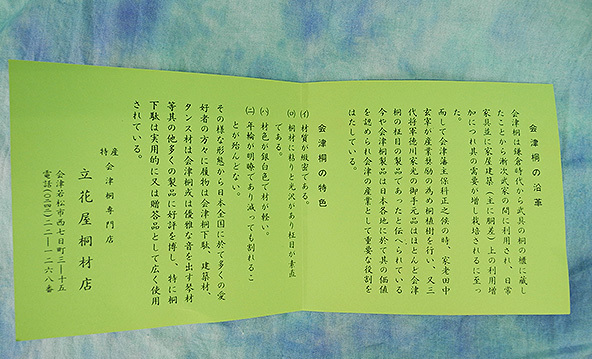 会津桐の沿革
会津桐は鎌倉時代から武具の桐の櫃に蔵し
たことから漸次武家の間に利用され、日常
家具並に家屋建築(主に胴差)上の利用増
加につれ其の需要が増し栽培されるに至っ
た。
而して会津藩主保科正之侯の時、家老田中
玄宰が産業奨励の為め桐植樹を行い、又三
代将軍徳川家光の御手元品はほとんど会津
桐の柾目の製品であったと伝へられている
今や会津桐製品は日本各地に於て其の価値
を認められ会津の産業として重要な役割を
はたしている。
会津桐の特色
(イ) 材質が緻密である。
(ロ) 桐材に粘りと光沢があり柾目が素直
である。
(ハ) 材色が銀白色で材が軽い。
(ニ) 年輪が明晰であり減っても割れるこ
とが殆んどない。
その様な形態から日本全国に於て多くの愛
好者の方々に履物は会津桐下駄、建築材、
タンス材は会津桐又は優雅な音を出す琴材
等其の他多くの製品に好評を博し、特に桐
下駄は実用的に又は贈答品として広く使用
されている。
特産
会津桐専門店
立花屋桐材店
会津若松市西七日町三―十五
電話(〇二四二)二二―一二六八番